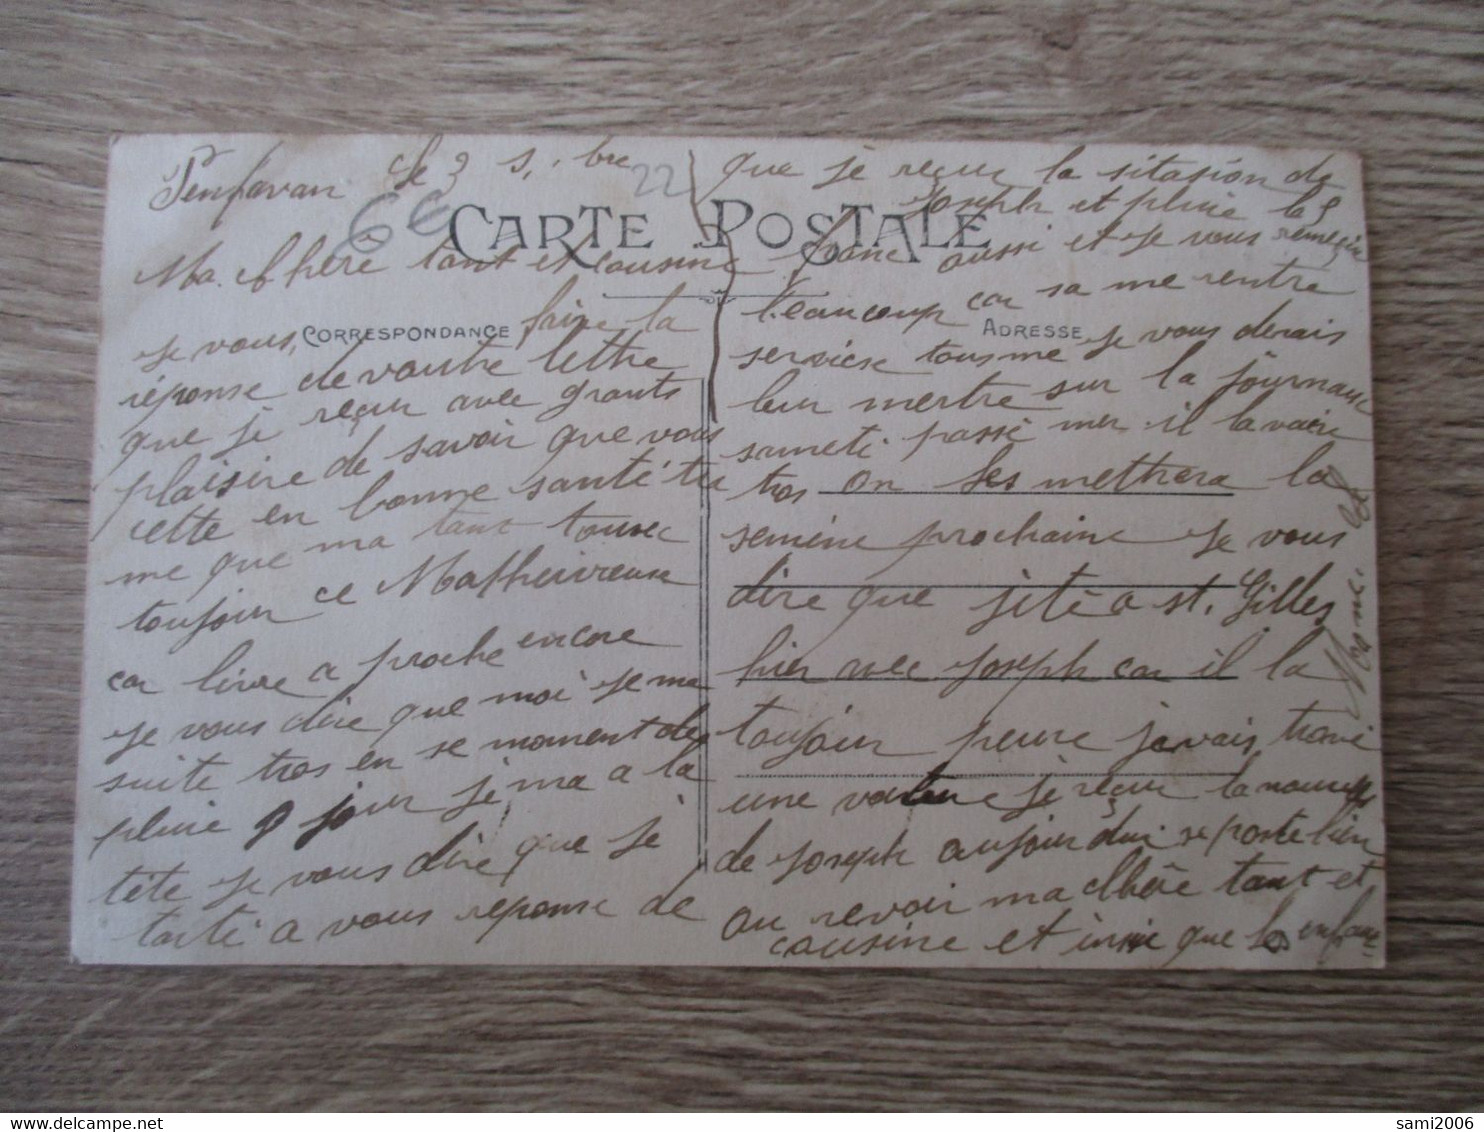 Penfavan le 3 S.bre 22
6€
CARTE POSTALE
Ma Chère tant et cousine
CORRESPONDANCE
je vous faire la
réponse de vautre lettre
que je reçur avec grants
plaisire de savoir que vous
cette en bonne santé tu
me que ma tant tousse
toujour ce Malheureuse
car livre a proche encore
je vous dire que moi je ma
suite tros en se moment de
pluie 9 jour je ma a la
tête je vous dire que je
tarté a vous reponse de
que je reçur la sitasion de
Joseph et pluie les
franc aussi et je vous remeçie
beaucoup car sa me rentre
ADRESSE
serviese tousme je vous derais
leur mertre sur la journaux
sameti passé mer il lavaire
tros on les methera la
semène prochaine je vous
dire que jité a st. Gilles
hier avec Joseph car il la
toujour peure javais trové
une voiture je reçur la nouvelle
de Joseph aujourdui se porte bien
au revoir ma Chère tant et
cousine et insie que les enfans
sami2006